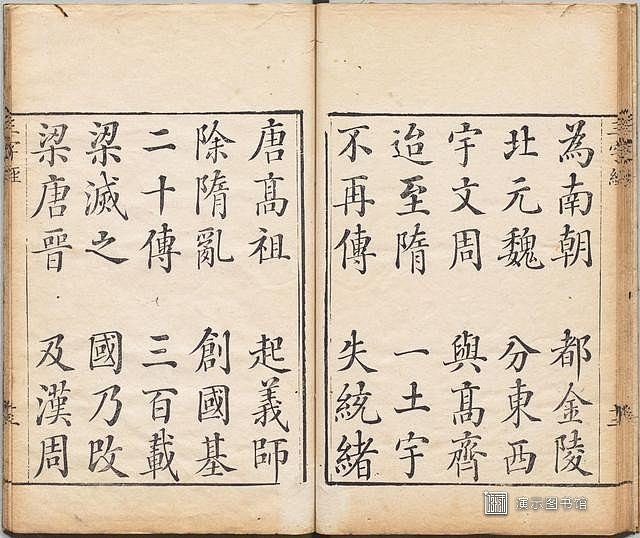 為南朝 都金陵
北元魏 分東西
宇文周 與高齊
迨至隋 一土宇
不再傳 失統緒
唐高祖 起義師
除隋亂 創國基
二十傳 三百載
梁滅之 國乃改
梁唐晉 及漢周
三字經
三字經
演示图书馆